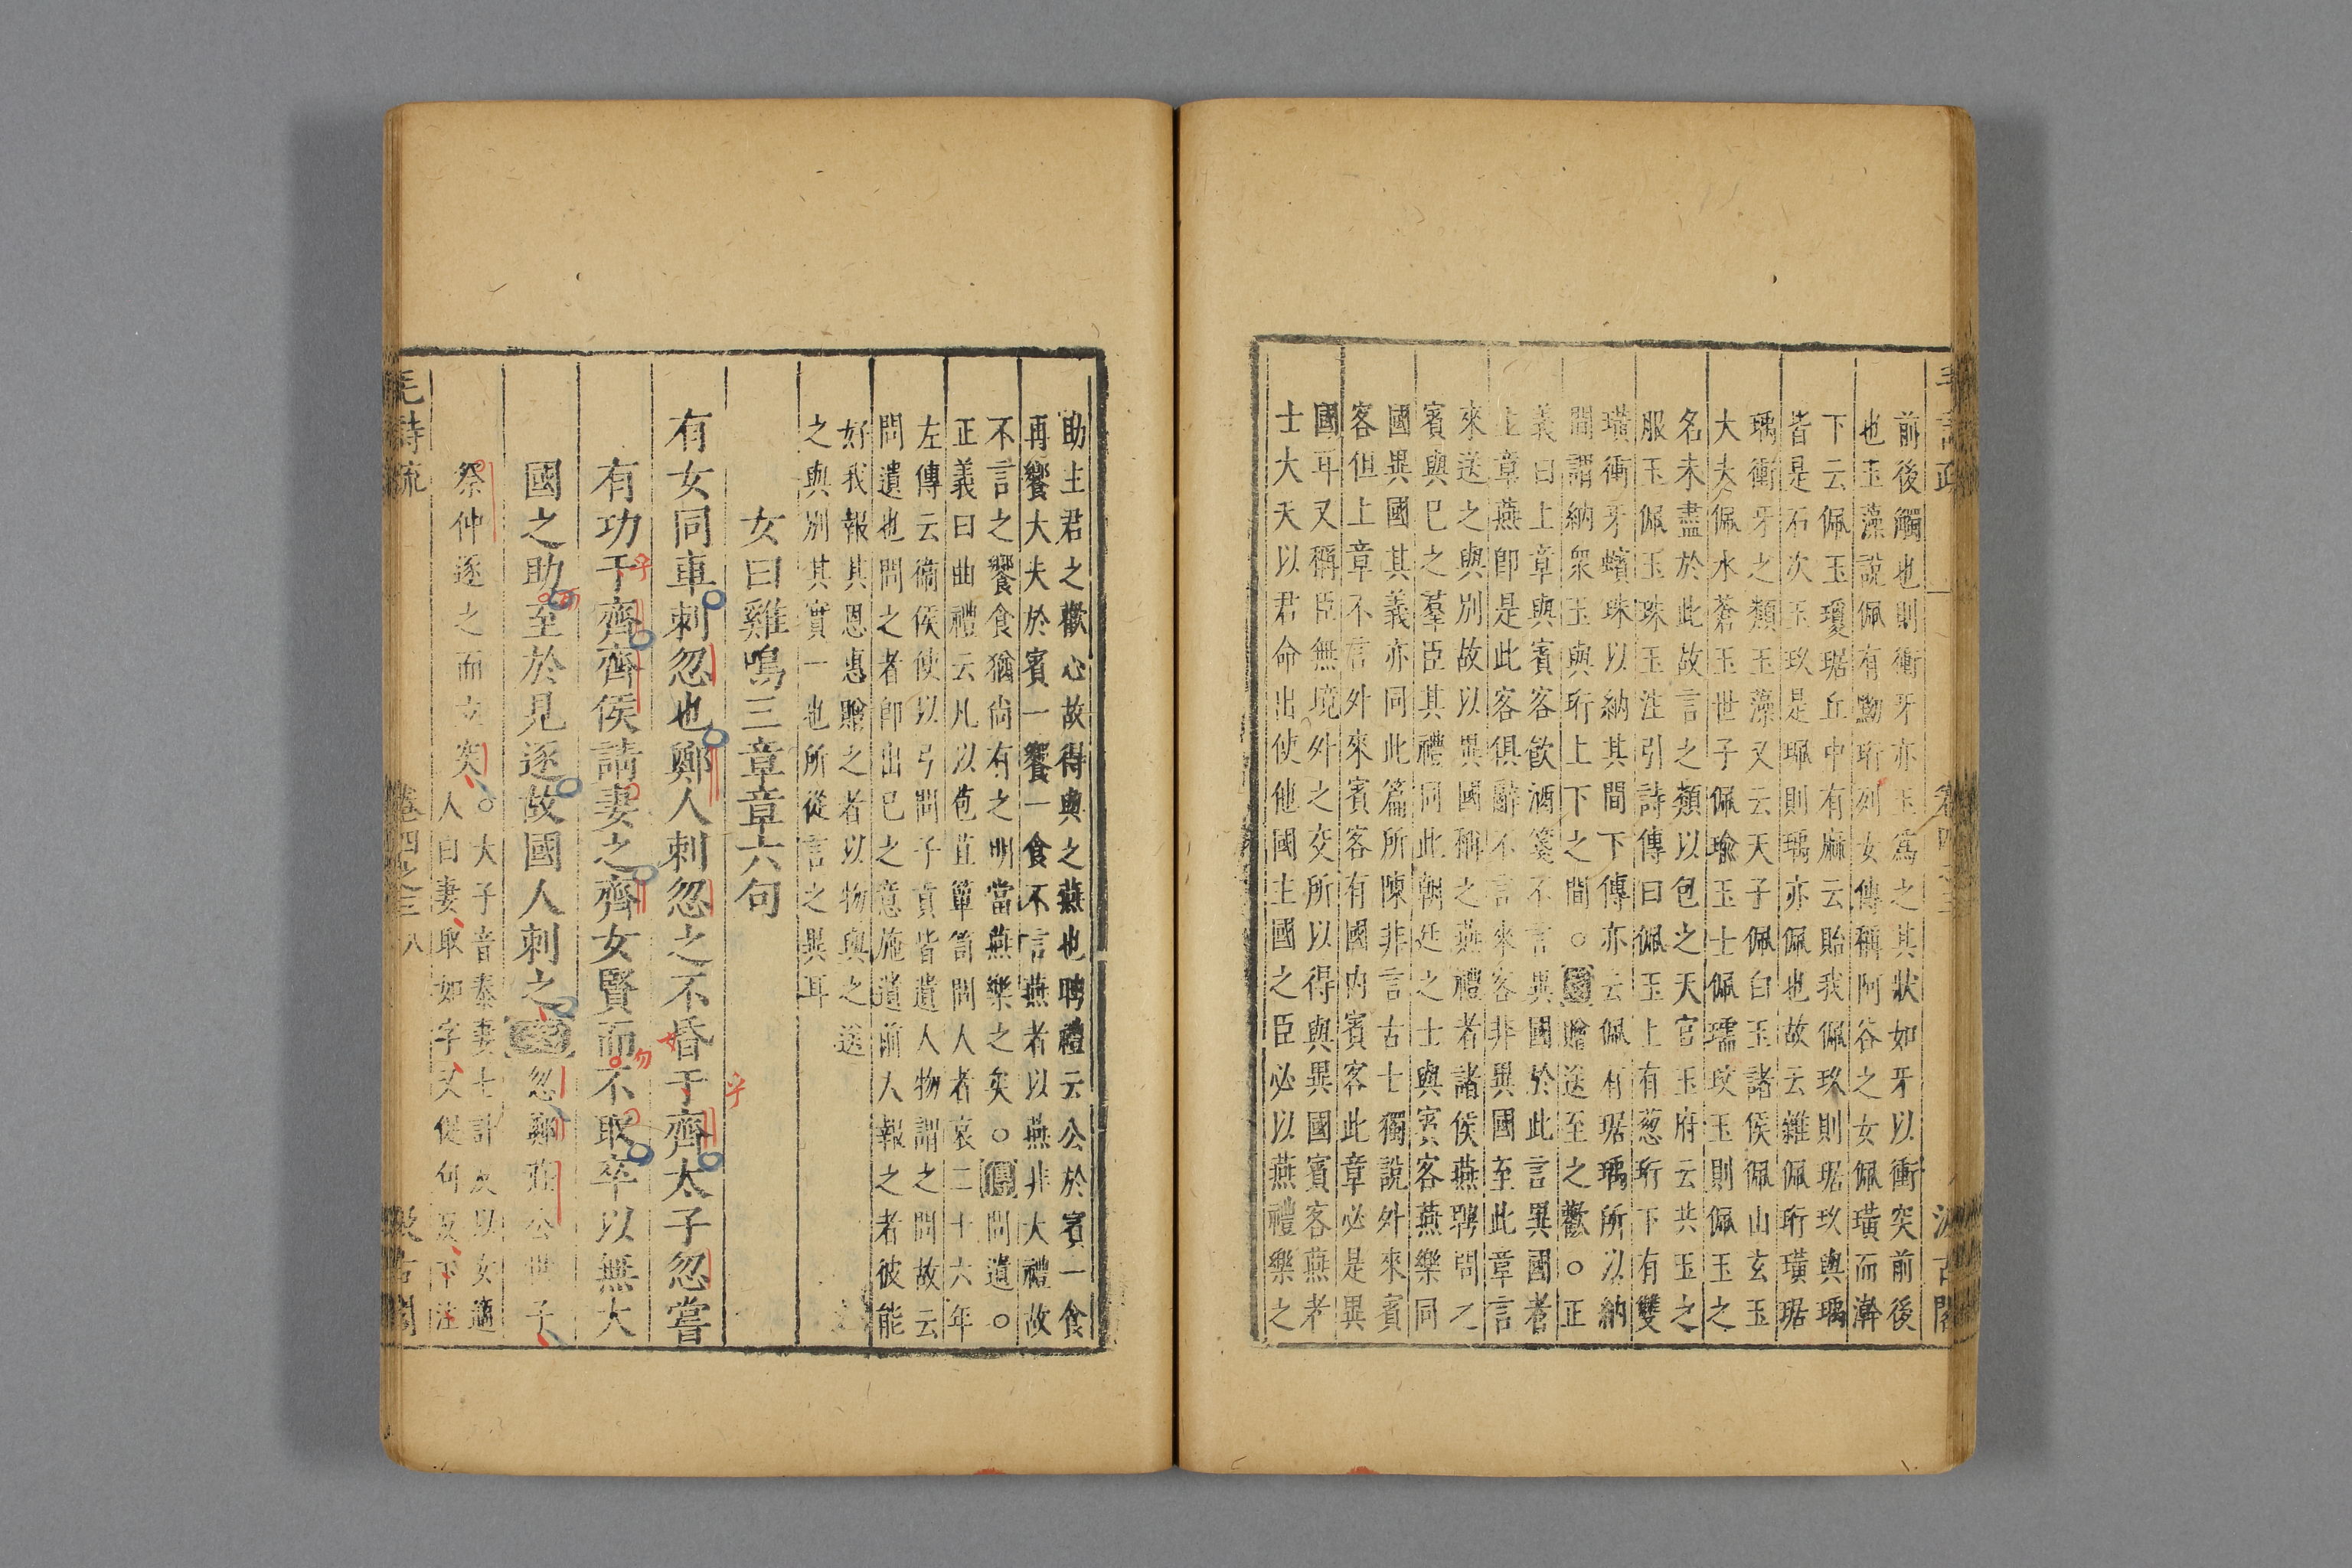 前後觸也則衝牙亦玉爲之其狀如牙以衝突前後
也玉藻說佩有黝珩列女傳稱阿谷之女佩璜而澣
下云佩玉瓊琚丘中有麻云貽我佩玖則琚玖與瑀
皆是石次玉玖是珮則瑀亦佩也故云雜佩珩璜琚
瑀衝牙之類玉藻又云天子佩白玉諸侯佩山玄玉
大夫佩水蒼玉世子佩瑜玉士佩瓀玟玉則佩玉之
名未盡於此故言之類以包之天官玉府云共玉之
服玉佩玉珠玉注引詩傳曰佩玉上有葱珩下有雙
璜衝牙蠙珠以納其間下傳亦云佩有琚瑀所以納
間謂納衆玉與珩上下之間○箋贈送至之歡○正
義曰上章與賓客飲酒箋不言異國於此言異國者
上章燕卽是此客俱辭不言來客非異國至此章言
來送之與別故以異國稱之燕禮者諸侯燕聘問之
賓與已之羣臣其禮同此朝廷之士與賓客燕樂同
國異國其義亦同此篇所陳非言古士獨說外來賓
客但上章不言外來賓客有國内賓客此章必是異
國耳又稱臣無境外之交所以得與異國賓客燕者
士大夫以君命出使他國主國之臣必以燕禮樂之
助主君之歡心故得與之燕也聘禮云公於賓一食
再饗大夫於賓一饗一食不言燕者以燕非大禮故
不言之饗食猶尚有之明當燕樂之矣○傳問遺○
正義曰曲禮云凡以苞苴簞笥問人者哀二十六年
左傳云衛侯使以弓問子貢皆遺人物謂之問故云
問遺也問之者卽出已之意施遺前人報之者彼能
好我報其恩惠贈之者以物與之送
之與別其實一也所從言之異耳
女曰雞鳴三章章六句
有女同車刺忽也鄭人刺忽之不昏于齊太子忽嘗
有功于齊齊侯請妻之齊女賢而不取卒以無大
國之助至於見逐故國人刺之箋忽鄭莊公世子
祭仲逐之而立突○大子音泰妻七計反以女適
人曰妻取如字又促句反下注
毛詩疏
卷四之三
八
汲古閣